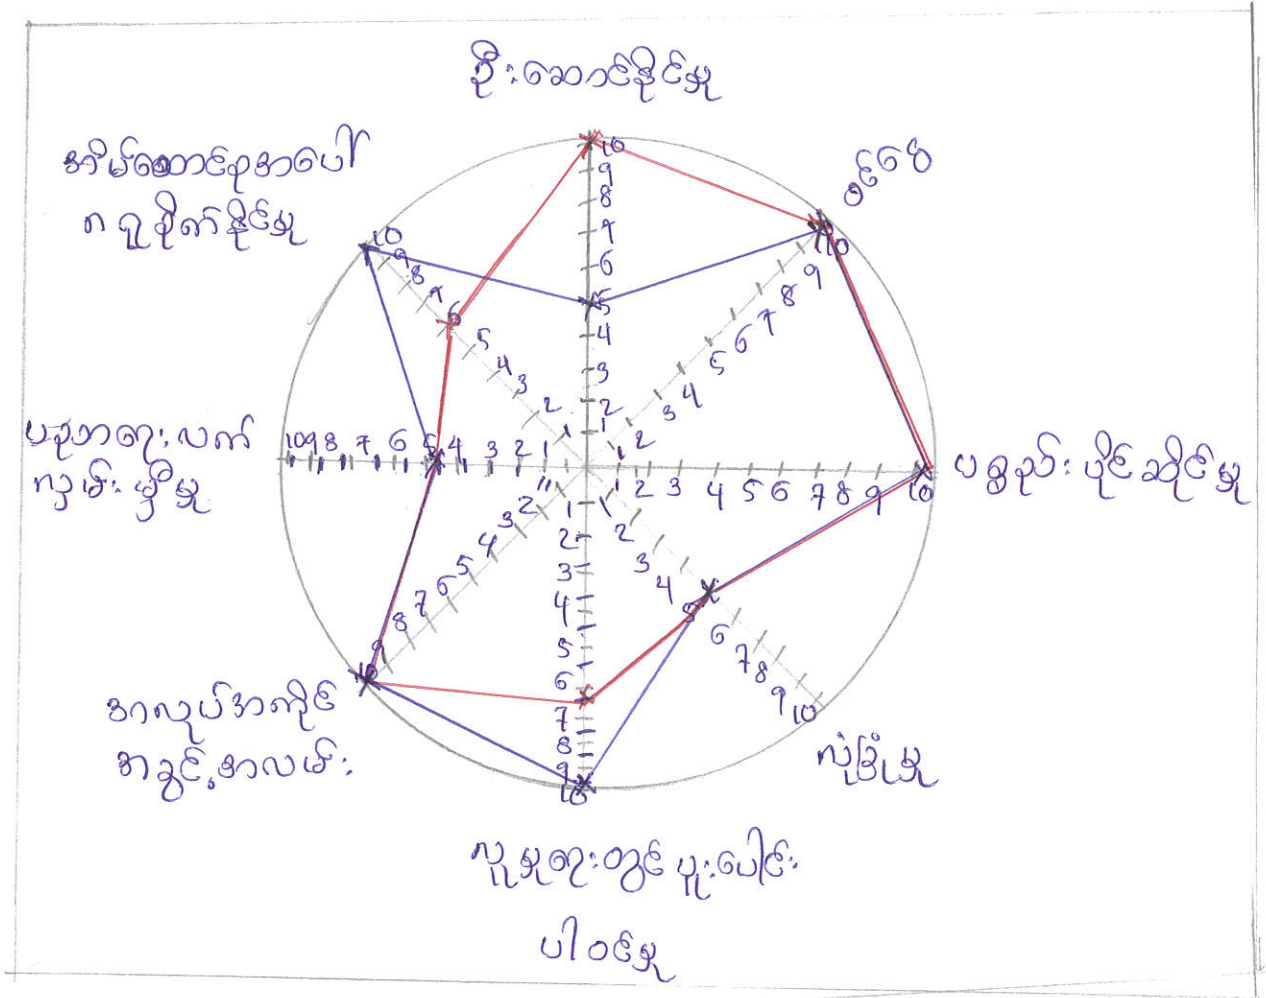 ဦးဆောင်နိုင်မှု
ဝင်ငွေ
ပစ္စည်းပိုင်ဆိုင်မှု
လုံခြုံမှု
လူမှုရေးတွင် ပူးပေါင်း
ပါဝင်မှု
အလုပ်အကိုင်
အခွင့်အလမ်း
ပညာရေးလက်
လှမ်းမှီမှု
အိမ်ထောင်စုအပေါ်
ဂရုစိုက်နိုင်မှု
10
9
8
7
6
5
4
3
2
1
10
9
8
7
6
5
4
3
2
1
1 2 3 4 5 6 7 8 9 10
1
2
3
4
5
6
7
8
9
10
1
2
3
4
5
6
7
8
9
10
1
2
3
4
5
6
7
8
9
10
10 9 8 7 6 5 4 3 2 1
10
9
8
7
6
5
4
3
2